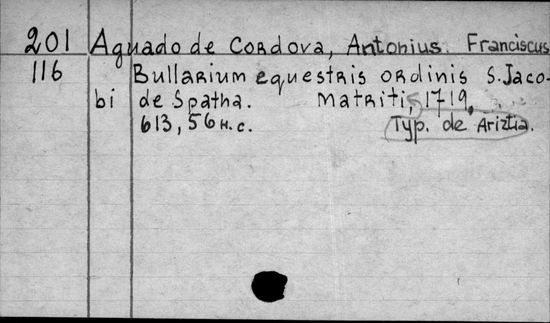 201 Aguado de Cordova, Antonius Franciscus
116 Bullarium equestris ordinis S. Jaco-
bi de Spatha. Matriti, 1719.
613, 56 н.с. Typ. de Ariztia.